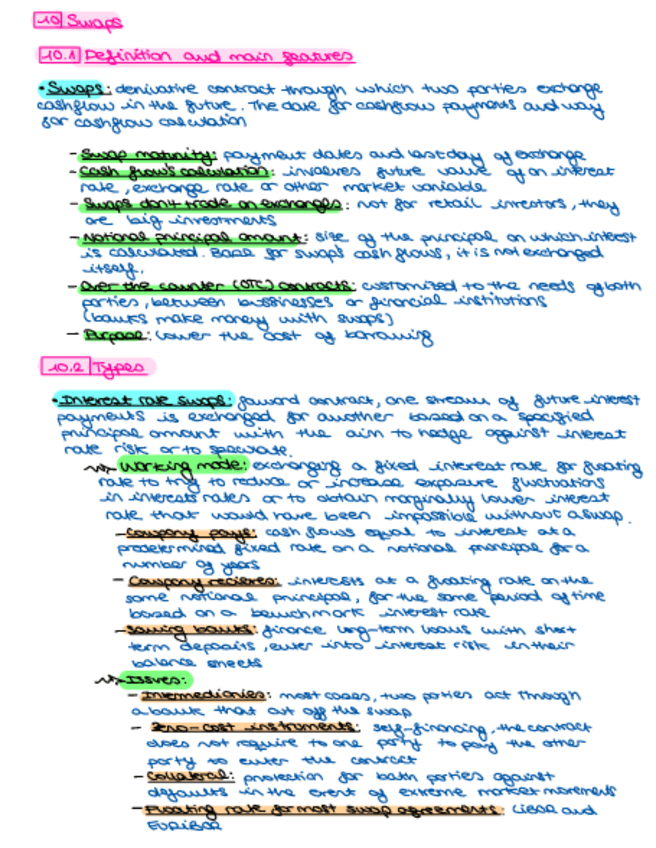 10 Swaps
10.1 Definition and main features
• Swaps: derivative contract through which two parties exchange
cashflow in the future. The date for cashflow payments and way
for cashflow calculation
- Swap maturity: payment dates and last day of exchange
- Cash flow's calculation: involves future value of an interest
rate, exchange rate or other market variable
- Swaps don't trade on exchanges: not for retail investors, they
are big investments
- Notional principal amount: size of the principal on which interest
is calculated. Base for swap's cash flows, it is not exchanged
itself.
- Over the counter (OTC) contracts: customized to the needs of both
parties, between bussinesses or financial institutions
(banks make money with swaps)
- Purpose: lower the cost of borrowing
10.2 Types
• Interest rate swaps: forward contract, one stream of future interest
payments is exchanged for another based on a specified
principal amount with the aim to hedge against interest
rate risk or to speculate.
Working mode: exchanging a fixed interest rate for floating
rate to try to reduce or increase exposure fluctuations
in interests rates or to obtain marginally lower interest
rate that would have been impossible without a swap.
- Company pays: cash flows equal to interest at a
predetermined fixed rate on a notional principal for a
number of years
- Company recieves: interests at a floating rate on the
same notional principal, for the same period of time
based on a benchmark interest rate
- Saving banks: finance long-term loans with short
term deposits, enter into interest risk in their
balance sheets
Issues:
- Intermediaries: most cases, two parties act through
a bank that cut off the swap
- Zero-cost instruments: self-financing, the contract
does not require to one party to pay the other
party to enter the contract
- Collateral: protection for both parties against
defaults in the event of extreme market movements
- Floating rate for most swap agreements: LIBOR and
EURIBOR